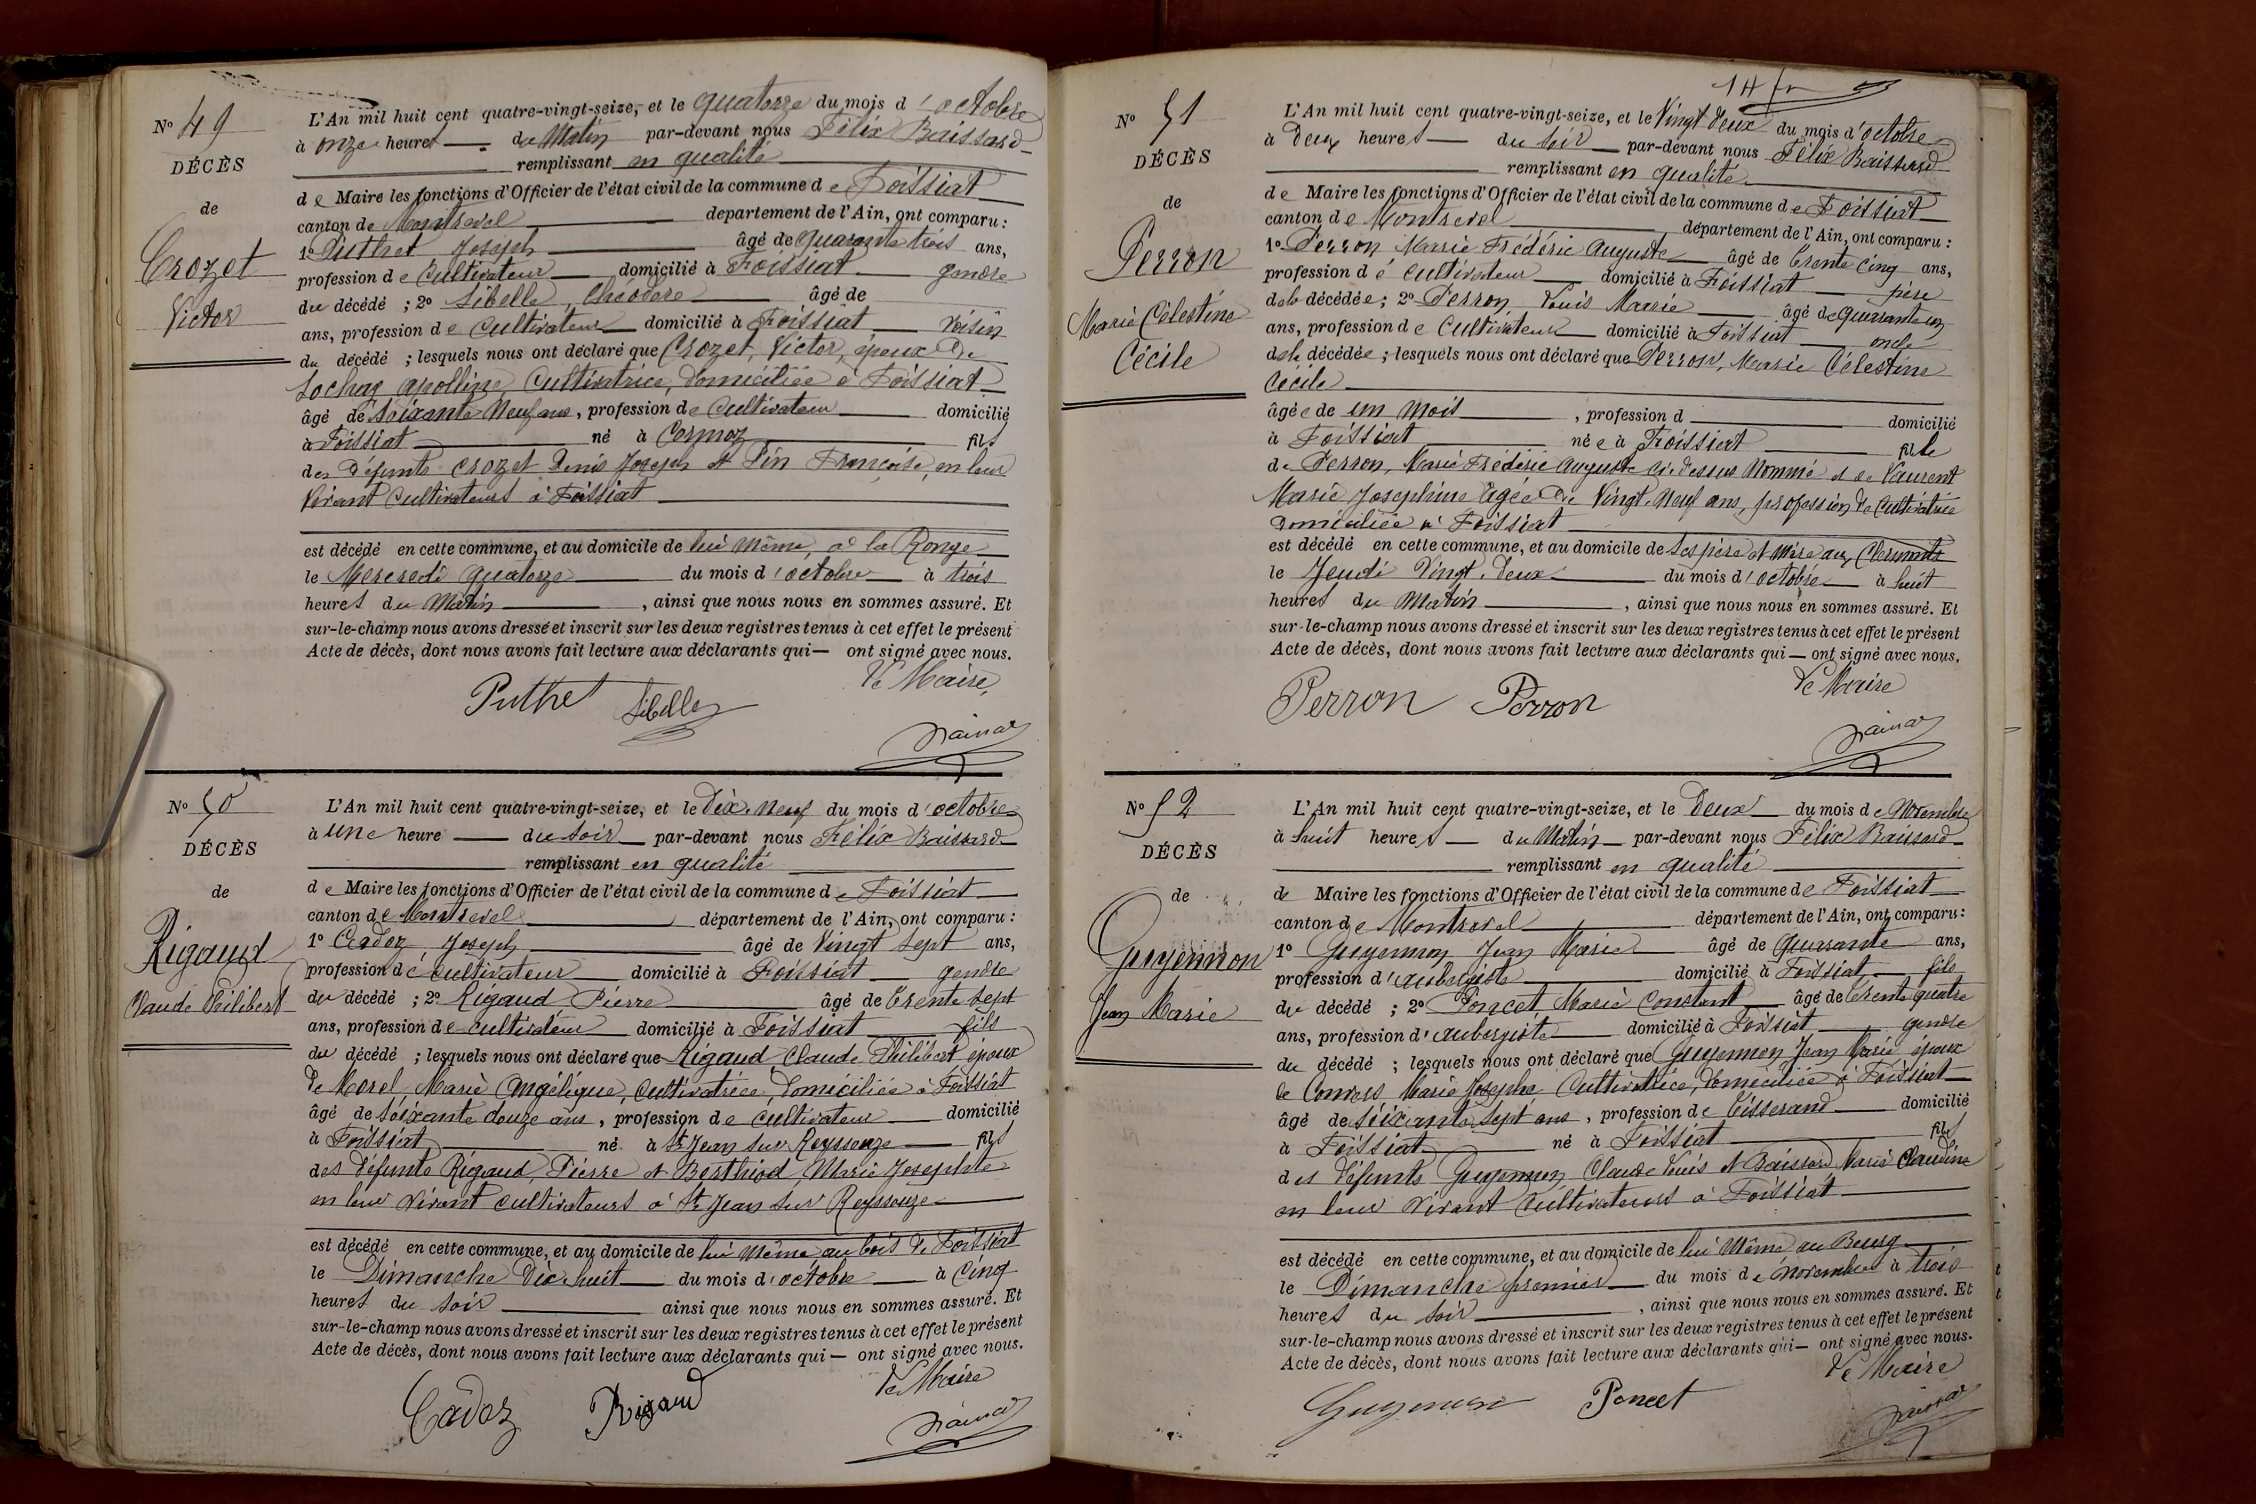 N° 49
DÉCÈS
de
Crozet
Victor
L'An mil huit cent quatre-vingt-seize, et le quatorze du mois d'octobre
à onze heures du Matin par-devant nous Félix Baissard
remplissant en qualité
de Maire les fonctions d'Officier de l'état civil de la commune de Foissiat
canton de Montrevel département de l'Ain, ont comparu :
1° Puthet Joseph âgé de quarante trois ans,
profession de Cultivateur domicilié à Foissiat gendre
du décédé ; 2° Sibelle, Théodore âgé de
ans, profession de Cultivateur domicilié à Foissiat Voisin
du décédé ; lesquels nous ont déclaré que Crozet, Victor, époux de
Sochay Apolline Cultivatrice, domiciliée à Foissiat
âgé de soixante Neuf ans, profession de Cultivateur domicilié
à Foissiat né à Cormoz fils
des défunts Crozet Denis Joseph et Pin Françoise, en leur
Vivant Cultivateurs à Foissiat
est décédé en cette commune, et au domicile de lui Même, à la Ronge
le Mercredi quatorze du mois d'octobre à trois
heures du Matin, ainsi que nous nous en sommes assuré. Et
sur-le-champ nous avons dressé et inscrit sur les deux registres tenus à cet effet le présent
Acte de décès, dont nous avons fait lecture aux déclarants qui — ont signé avec nous.
Le Maire,
Puthet Sibelle
N° 50
DÉCÈS
de
Rigaud
Claude Philibert
L'An mil huit cent quatre-vingt-seize, et le Dix-Neuf du mois d'octobre
à une heure du Soir par-devant nous Félix Baissard
remplissant en qualité
de Maire les fonctions d'Officier de l'état civil de la commune de Foissiat
canton de Montrevel département de l'Ain, ont comparu :
1° Cadoz Joseph âgé de Vingt sept ans,
profession de cultivateur domicilié à Foissiat gendre
du décédé ; 2° Rigaud Pierre âgé de Trente Sept
ans, profession de cultivateur domicilié à Foissiat fils
du décédé ; lesquels nous ont déclaré que Rigaud Claude Philibert époux
de Morel, Marie Angélique, cultivatrice, domiciliée à Foissiat
âgé de soixante douze ans, profession de cultivateur domicilié
à Foissiat né à St Jean sur Reyssouze fils
des défunts Rigaud, Pierre et Berthiod, Marie Josephte
en leur vivant cultivateurs à St Jean sur Reyssouze
est décédé en cette commune, et au domicile de lui Même au bois de Foissiat
le Dimanche Dix huit du mois d'octobre à Cinq
heures du soir ainsi que nous nous en sommes assuré. Et
sur-le-champ nous avons dressé et inscrit sur les deux registres tenus à cet effet le présent
Acte de décès, dont nous avons fait lecture aux déclarants qui — ont signé avec nous.
Le Maire
Cadoz Rigaud
N° 51
DÉCÈS
de
Perron
Marie Célestine
Cécile
L'An mil huit cent quatre-vingt-seize, et le Vingt Deux du mois d'octobre
à Deux heures du Soir par-devant nous Félix Baissard
remplissant en qualité
de Maire les fonctions d'Officier de l'état civil de la commune de Foissiat
canton de Montrevel département de l'Ain, ont comparu :
1° Perron Marie Frédéric Auguste âgé de Trente Cinq ans,
profession de cultivateur domicilié à Foissiat père
de la décédée ; 2° Perron Louis Marie âgé de quarante un
ans, profession de Cultivateur domicilié à Foissiat oncle
de la décédée ; lesquels nous ont déclaré que Perron, Marie Célestine
Cécile
âgée de un Mois, profession d domicilié
à Foissiat née à Foissiat fille
de Perron, Marie Frédéric Auguste ci-dessus Nommé et de Laurent
Marie Josephine âgée de Vingt-Neuf ans, profession de Cultivatrice
domiciliée à Foissiat
est décédé en cette commune, et au domicile de ses père et Mère aux
le Jeudi Vingt-deux du mois d'octobre à huit
heures du Matin, ainsi que nous nous en sommes assuré. Et
sur-le-champ nous avons dressé et inscrit sur les deux registres tenus à cet effet le présent
Acte de décès, dont nous avons fait lecture aux déclarants qui — ont signé avec nous.
Le Maire
Perron Perron
N° 52
DÉCÈS
de
Guyennon
Jean Marie
L'An mil huit cent quatre-vingt-seize, et le Deux du mois de Novembre
à huit heures du Matin par-devant nous Félix Baissard
remplissant en qualité
de Maire les fonctions d'Officier de l'état civil de la commune de Foissiat
canton de Montrevel département de l'Ain, ont comparu :
1° Guyennon Jean Marie âgé de Quarante ans,
profession d'aubergiste domicilié à Foissiat fils
du décédé ; 2° Poncet Marie Constant âgé de Trente quatre
ans, profession d'aubergiste domicilié à Foissiat gendre
du décédé ; lesquels nous ont déclaré que Guyennon Jean Marie époux
de Convers Marie Josephe Cultivatrice, domiciliée à Foissiat
âgé de soixante sept ans, profession de Tisserand domicilié
à Foissiat né à Foissiat fils
des défunts Guyennon Claude Louis et Baissard Marie Claudine
en leur vivant Cultivateurs à Foissiat
est décédé en cette commune, et au domicile de lui Même au Bourg
le Dimanche premier du mois de Novembre à trois
heures du soir, ainsi que nous nous en sommes assuré. Et
sur-le-champ nous avons dressé et inscrit sur les deux registres tenus à cet effet le présent
Acte de décès, dont nous avons fait lecture aux déclarants qui — ont signé avec nous.
Le Maire
Guyennon Poncet